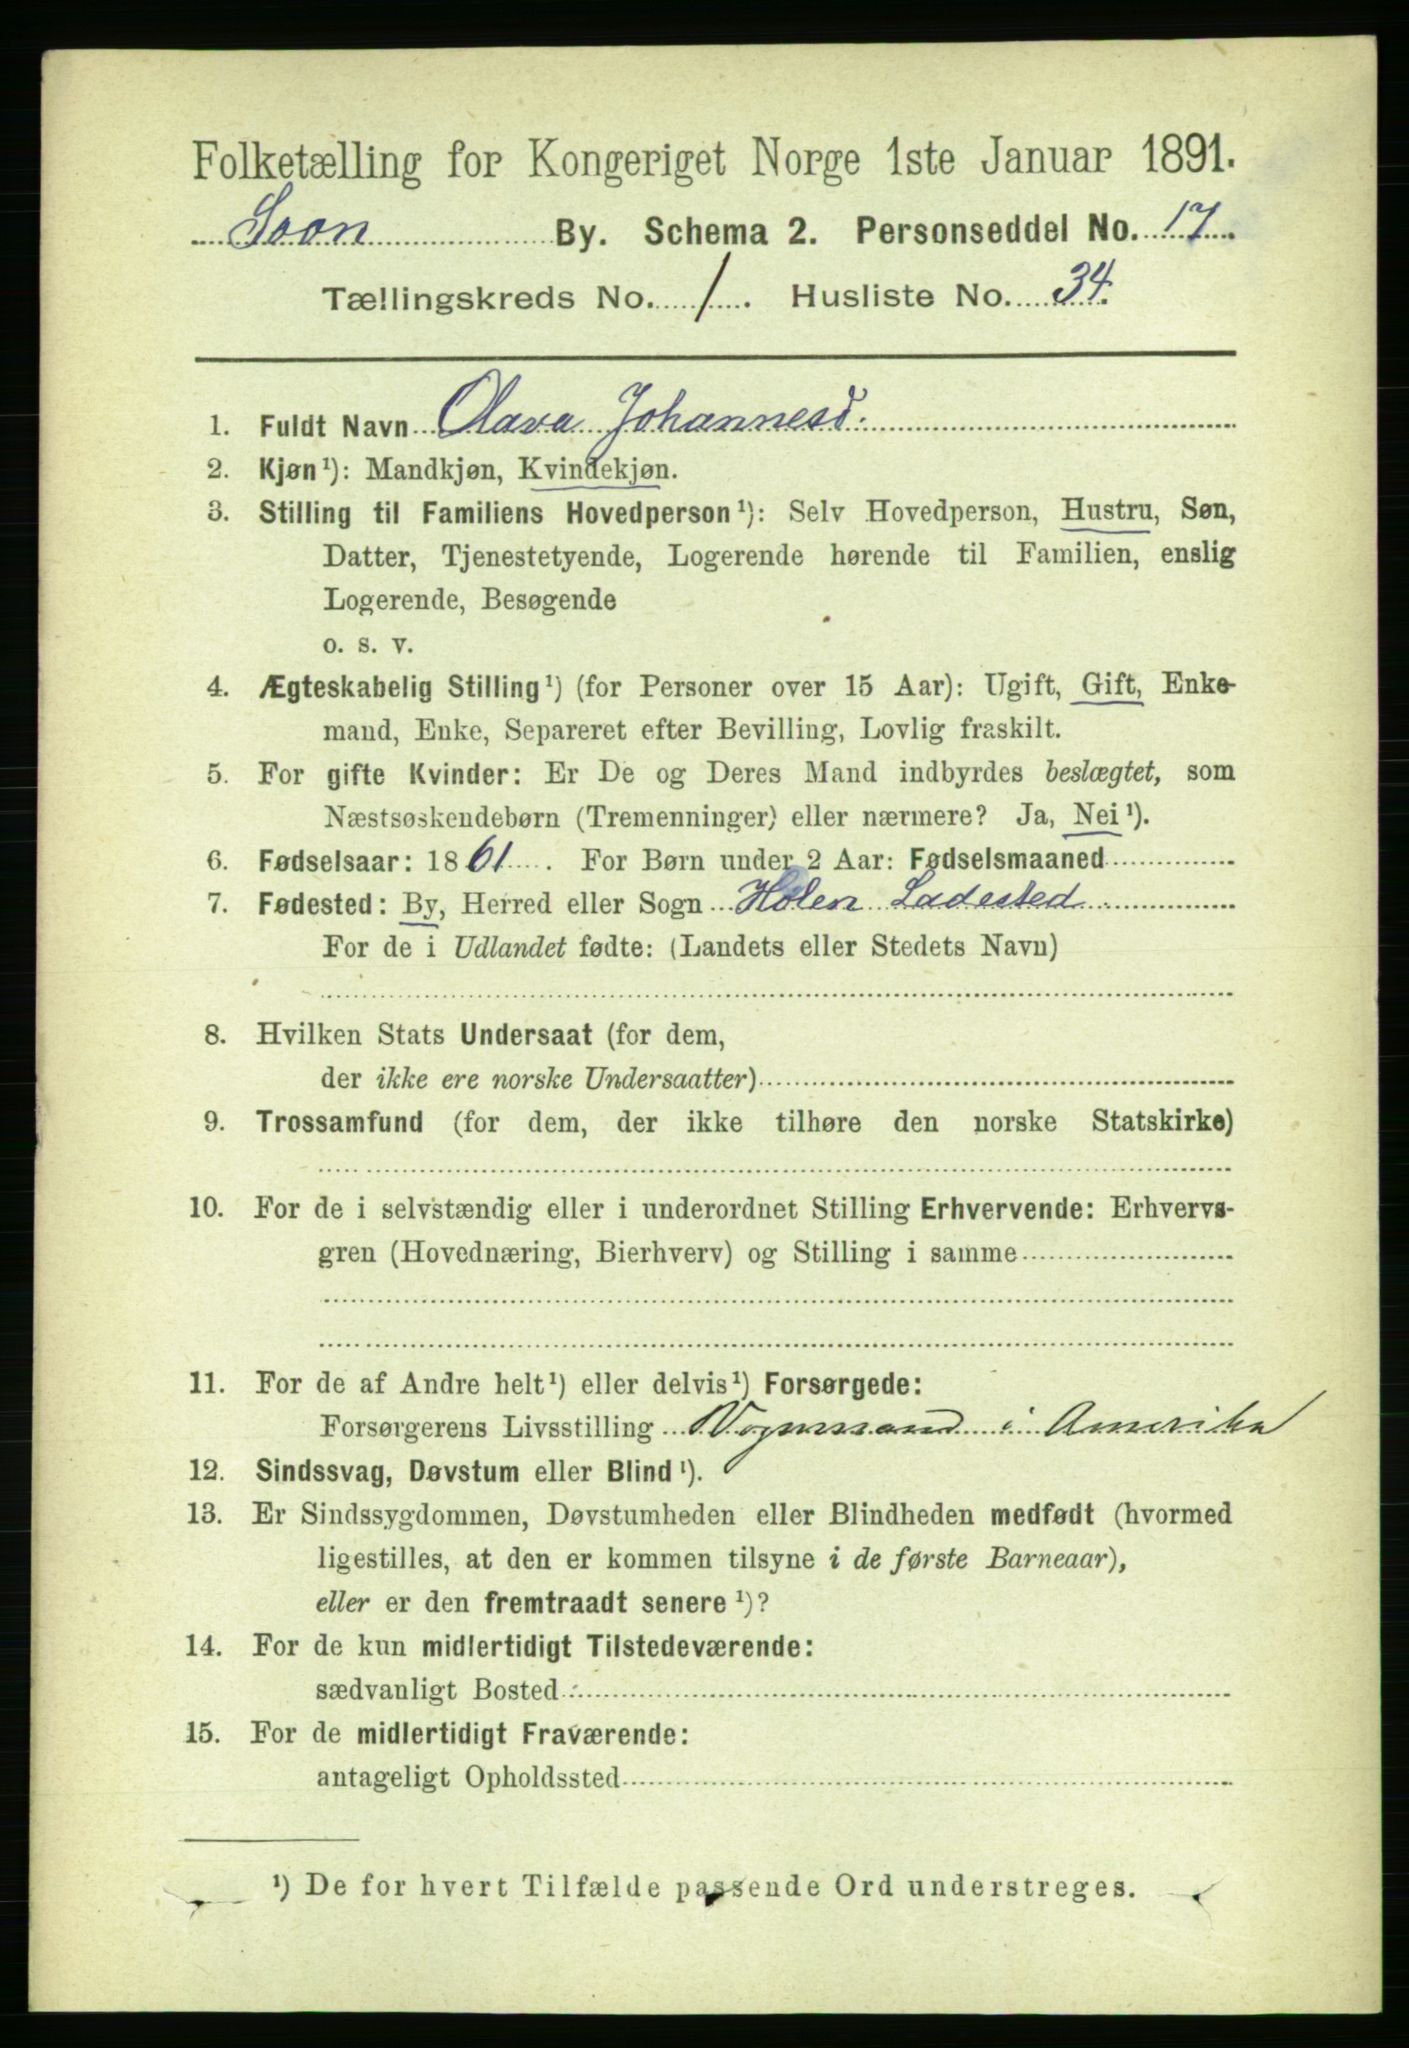 Folketælling for Kongeriget Norge 1ste Januar 1891.
Soon By. Schema 2. Personseddel No. 17.
Tællingskreds No. 1. Husliste No. 34.
1. Fuldt Navn Olava Johannesd.
2. Kjøn¹): Mandkjøn, Kvindekjøn.
3. Stilling til Familiens Hovedperson¹): Selv Hovedperson, Hustru, Søn,
Datter, Tjenestetyende, Logerende hørende til Familien, enslig
Logerende, Besøgende
o. s. v.
4. Ægteskabelig Stilling¹) (for Personer over 15 Aar): Ugift, Gift, Enke-
mand, Enke, Separeret efter Bevilling, Lovlig fraskilt.
5. For gifte Kvinder: Er De og Deres Mand indbyrdes beslægtet, som
Næstsøskendebørn (Tremenninger) eller nærmere? Ja, Nei¹).
6. Fødselsaar: 1861. For Børn under 2 Aar: Fødselsmaaned
7. Fødested: By, Herred eller Sogn Holen Ladested
For de i Udlandet fødte: (Landets eller Stedets Navn)
8. Hvilken Stats Undersaat (for dem,
der ikke ere norske Undersaatter)
9. Trossamfund (for dem, der ikke tilhøre den norske Statskirke)
10. For de i selvstændig eller i underordnet Stilling Erhvervende: Erhvervs-
gren (Hovednæring, Bierhverv) og Stilling i samme
11. For de af Andre helt¹) eller delvis¹) Forsørgede:
Forsørgerens Livsstilling Vognmand i Amerika
12. Sindssvag, Døvstum eller Blind¹).
13. Er Sindssygdommen, Døvstumheden eller Blindheden medfødt (hvormed
ligestilles, at den er kommen tilsyne i de første Barneaar),
eller er den fremtraadt senere¹)?
14. For de kun midlertidigt Tilstedeværende:
sædvanligt Bosted
15. For de midlertidigt Fraværende:
antageligt Opholdssted
¹) De for hvert Tilfælde passende Ord understreges.